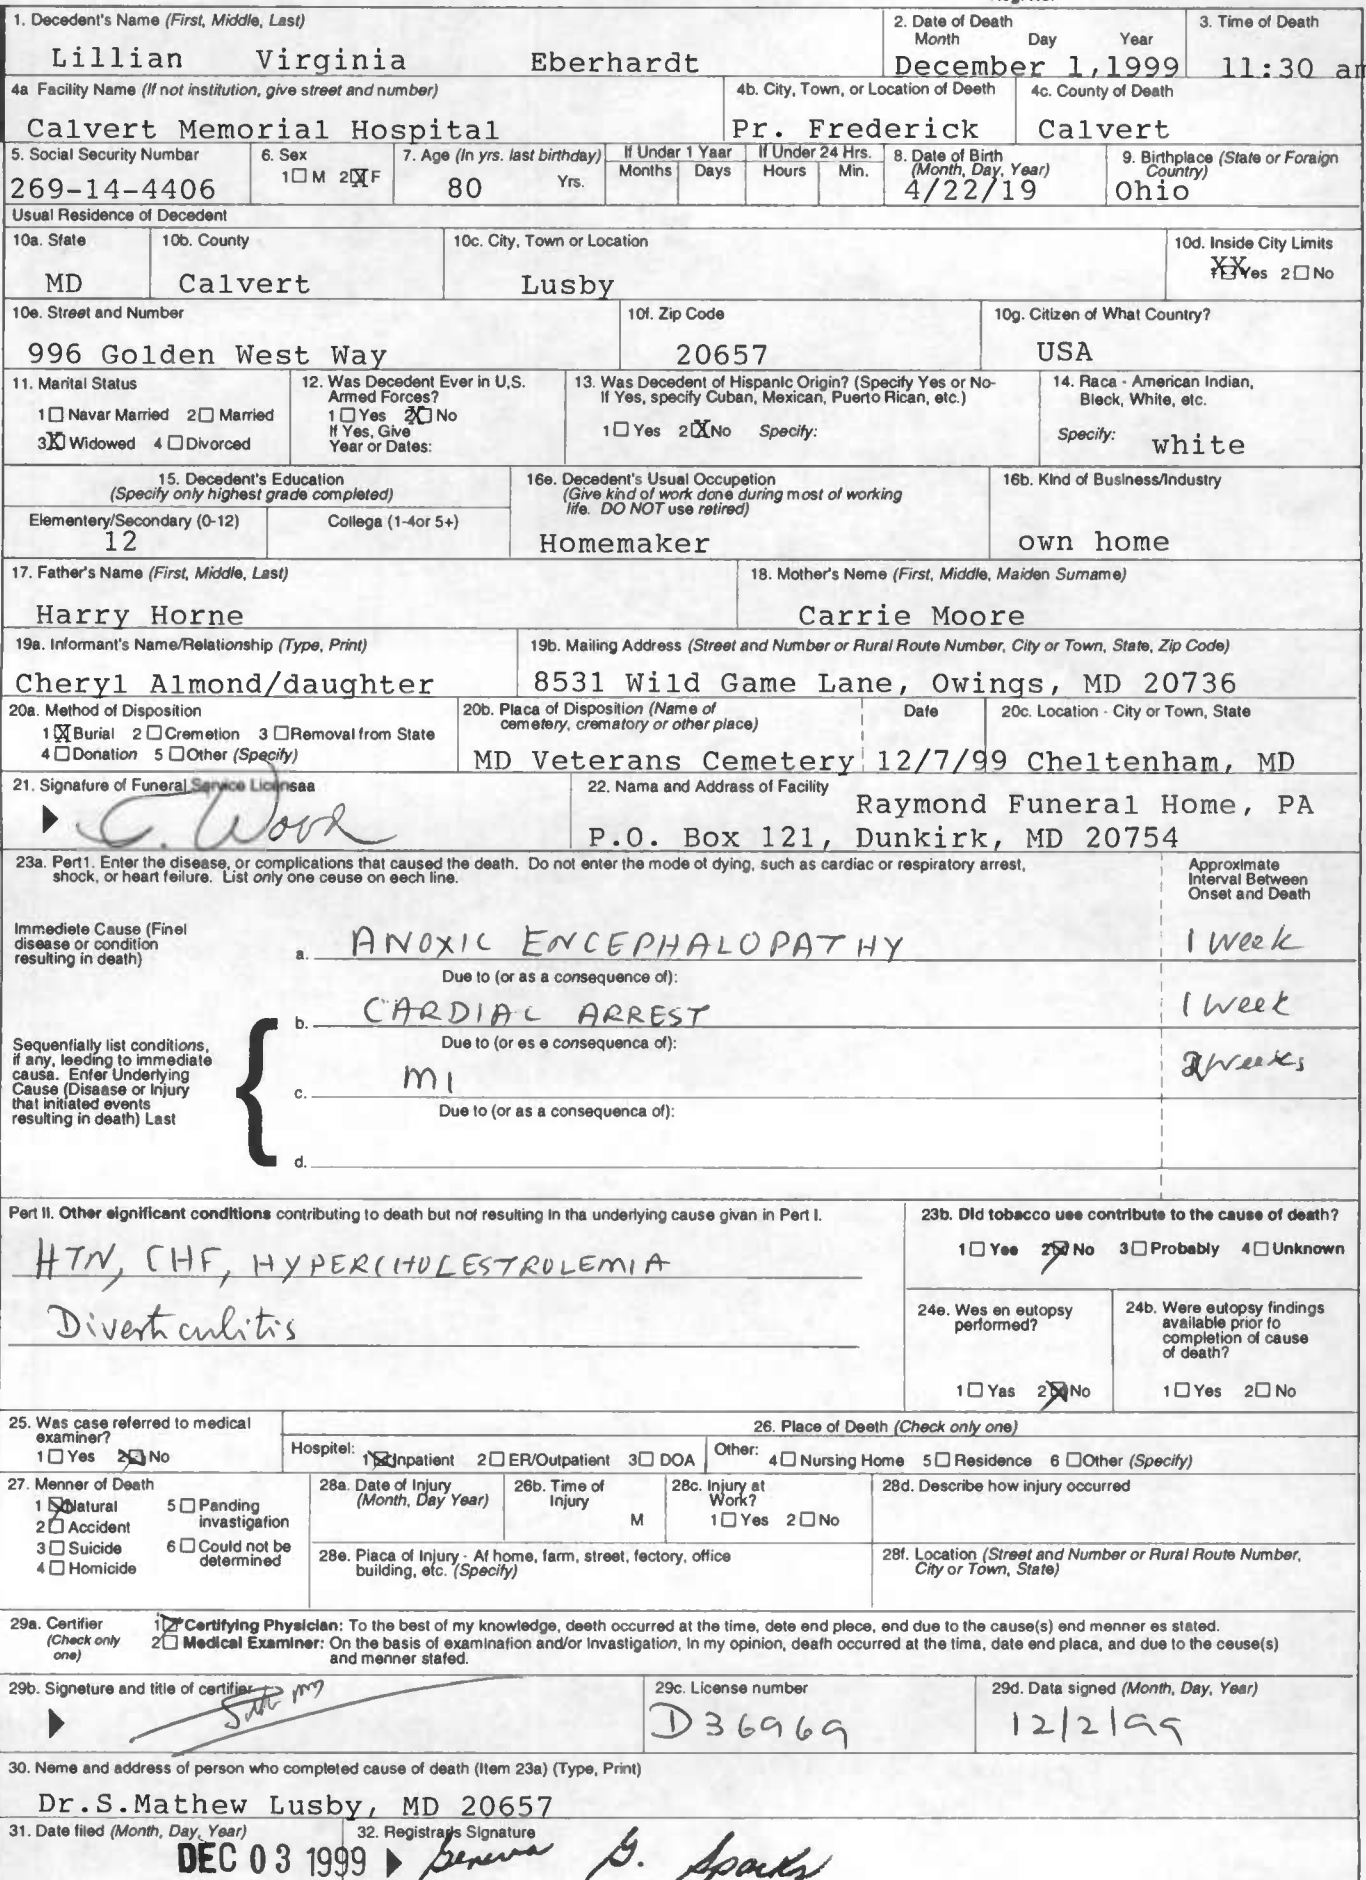 1. Decedent's Name (First, Middle, Last)
2. Date of Death
Month Day Year
3. Time of Death
Lillian Virginia Eberhardt
December 1,1999
11:30 am
4a Facility Name (If not institution, give street and number)
4b. City, Town, or Location of Deeth
4c. County of Death
Calvert Memorial Hospital
Pr. Frederick
Calvert
5. Social Security Numbar
6. Sex
7. Age (In yrs. last birthday)
If Undar 1 Yaar
If Under 24 Hrs.
8. Date of Birth
(Month, Day, Year)
9. Birthplace (State or Foraign
Country)
1☐ M 2☒ F
Yrs.
Months Days
Hours Min.
269-14-4406
80
4/22/19
Ohio
Usual Residence of Decedent
10a. Sfate
10b. County
10c. City, Town or Location
10d. Inside City Limits
XX Yes 2☐ No
MD
Calvert
Lusby
10e. Street and Number
10f. Zip Code
10g. Citizen of What Country?
996 Golden West Way
20657
USA
11. Marital Status
1☐ Navar Married 2☐ Married
3☒ Widowed 4☐ Divorced
12. Was Decedent Ever in U,S.
Armed Forces?
1☐ Yes 2☒ No
If Yes, Give
Year or Dates:
13. Was Decedent of Hispanic Origin? (Specify Yes or No-
If Yes, specify Cuban, Mexican, Puerto Rican, etc.)
1☐ Yes 2☒ No Specify:
14. Raca - American Indian,
Bleck, White, etc.
Specify: white
15. Decedent's Education
(Specify only highest grade completed)
Elementery/Secondary (0-12)
Collega (1-4or 5+)
12
16e. Decedent's Usual Occupetion
(Give kind of work done during most of working
life. DO NOT use retired)
Homemaker
16b. Kind of Business/Industry
own home
17. Father's Name (First, Middle, Last)
18. Mother's Neme (First, Middle, Maiden Surname)
Harry Horne
Carrie Moore
19a. Informant's Name/Relationship (Type, Print)
19b. Mailing Address (Street and Number or Rural Route Number, City or Town, State, Zip Code)
Cheryl Almond/daughter
8531 Wild Game Lane, Owings, MD 20736
20a. Method of Disposition
1☒ Burial 2☐ Cremetion 3☐ Removal from State
4☐ Donation 5☐ Other (Specify)
20b. Placa of Disposition (Name of
cemetery, crematory or other place)
Date
20c. Location - City or Town, State
MD Veterans Cemetery
12/7/99
Cheltenham, MD
21. Signature of Funeral Service Licensaa
C. Wood
22. Nama and Addrass of Facility
Raymond Funeral Home, PA
P.O. Box 121, Dunkirk, MD 20754
23a. Pert1. Enter the disease, or complications that caused the death. Do not enter the mode of dying, such as cardiac or respiratory arrest,
shock, or heart feilure. List only one ceuse on eech line.
Approximate
Interval Between
Onset and Death
Immediete Cause (Finel
disease or condition
resulting in death)
a. ANOXIC ENCEPHALOPATHY
1 week
Due to (or as a consequence of):
b. CARDIAC ARREST
1 week
Due to (or es e consequenca of):
Sequenfially list conditions,
if any, leeding to immediate
causa. Enfer Underlying
Cause (Disaase or Injury
that initiated events
resulting in death) Last
c. MI
2 weeks
Due to (or as a consequenca of):
d.
Part II. Other significant conditions contributing to death but nof resulting In tha underlying cause givan in Part I.
HTN, CHF, HYPERCHOLESTROLEMIA
Diverticulitis
23b. Did tobacco use contribute to the cause of death?
1☐ Yee 2☒ No 3☐ Probably 4☐ Unknown
24e. Wes en eutopsy
performed?
1☐ Yas 2☒ No
24b. Were eutopsy findings
available prior fo
completion of cause
of death?
1☐ Yes 2☐ No
25. Was case referred to medical
examiner?
1☐ Yes 2☒ No
26. Place of Deeth (Check only one)
Hospitel: 1☒ Inpatient 2☐ ER/Outpatient 3☐ DOA
Other: 4☐ Nursing Home 5☐ Residence 6☐ Other (Specify)
27. Menner of Death
1☒ Natural
2☐ Accident
3☐ Suicide
4☐ Homicide
5☐ Panding
invastigation
6☐ Could not be
determined
28a. Date of Injury
(Month, Day Year)
26b. Time of
Injury
M
28c. Injury at
Work?
1☐ Yes 2☐ No
28d. Describe how injury occurred
28e. Piaca of Injury - Af home, farm, street, fectory, office
building, etc. (Specify)
28f. Location (Street and Number or Rural Route Number,
City or Town, State)
29a. Certifier
(Check only
one)
1☒ Certifying Physician: To the best of my knowledge, deeth occurred at the time, dete end plece, end due to the cause(s) end menner es stated.
2☐ Medical Examiner: On the basis of examinafion and/or Invastigation, In my opinion, deafh occurred at the tima, date end placa, and due to the ceuse(s)
and menner stafed.
29b. Signeture and title of certifier
MD
29c. License number
D36969
29d. Data signed (Month, Day, Year)
12/2/99
30. Neme and address of person who completed cause of death (Item 23a) (Type, Print)
Dr.S.Mathew Lusby, MD 20657
31. Date filed (Month, Day, Year)
DEC 03 1999
32. Registrar's Signature
Geneva G. Sparks